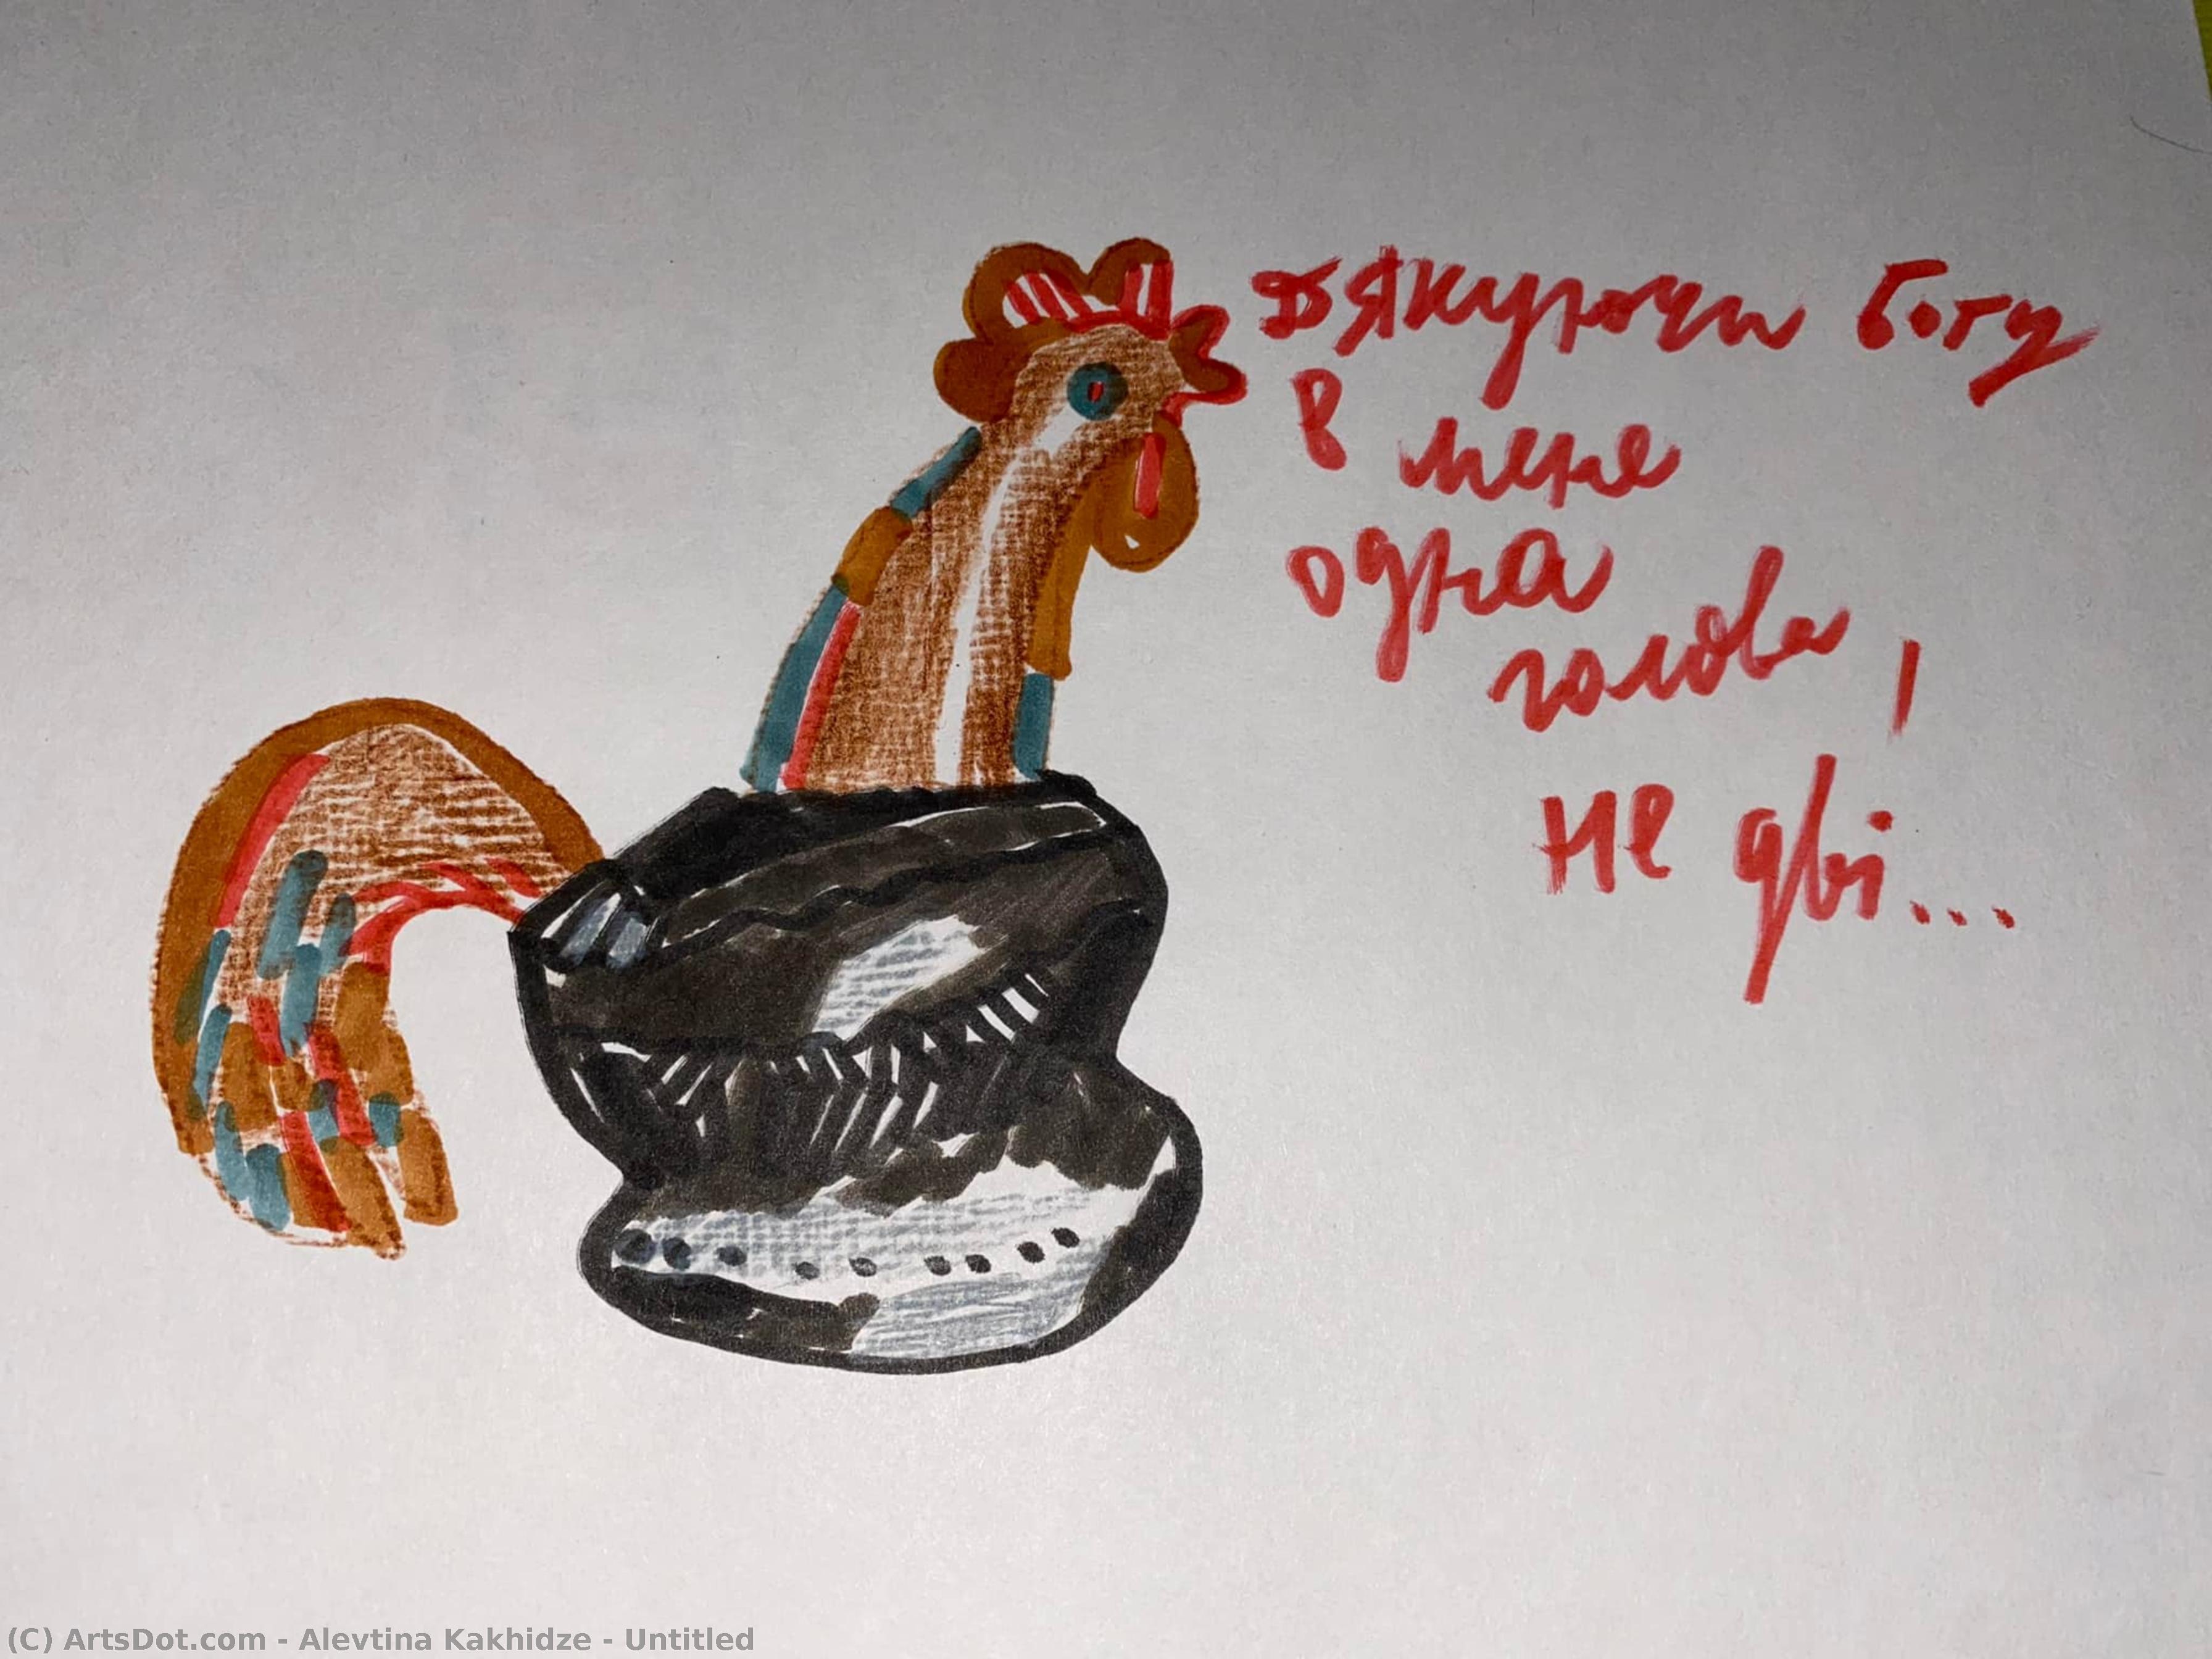 дякуючи богу
в мене
одна
голова,
не дві...
(C) ArtsDot.com - Alevtina Kakhidze - Untitled